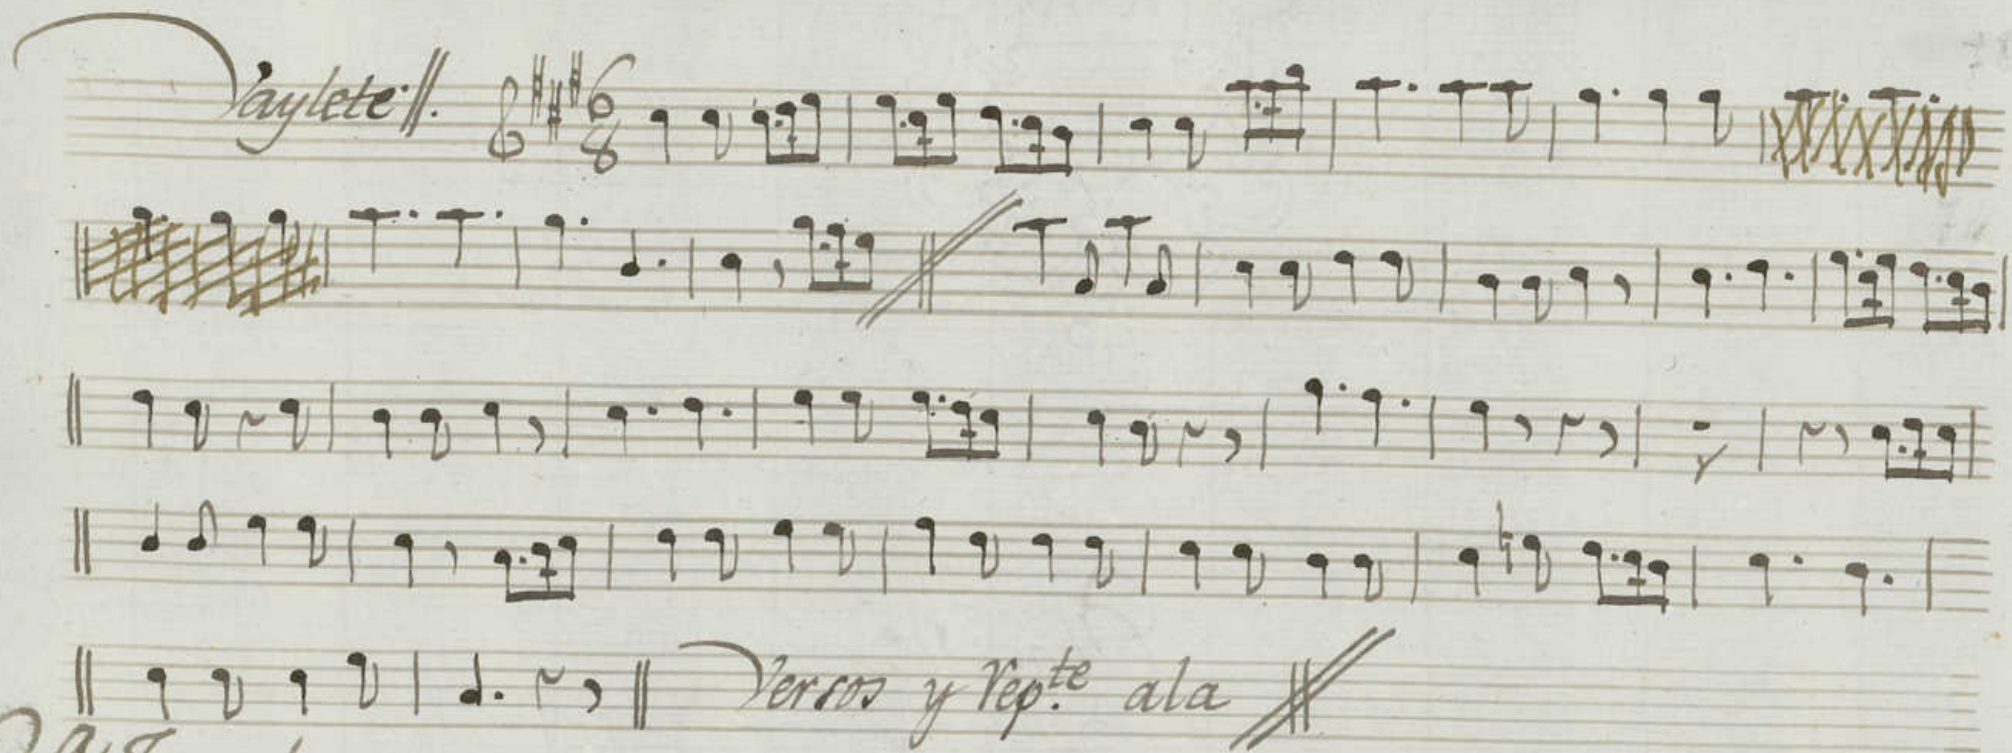 Vaylete //.
6 8
Versos y Rep.te ala